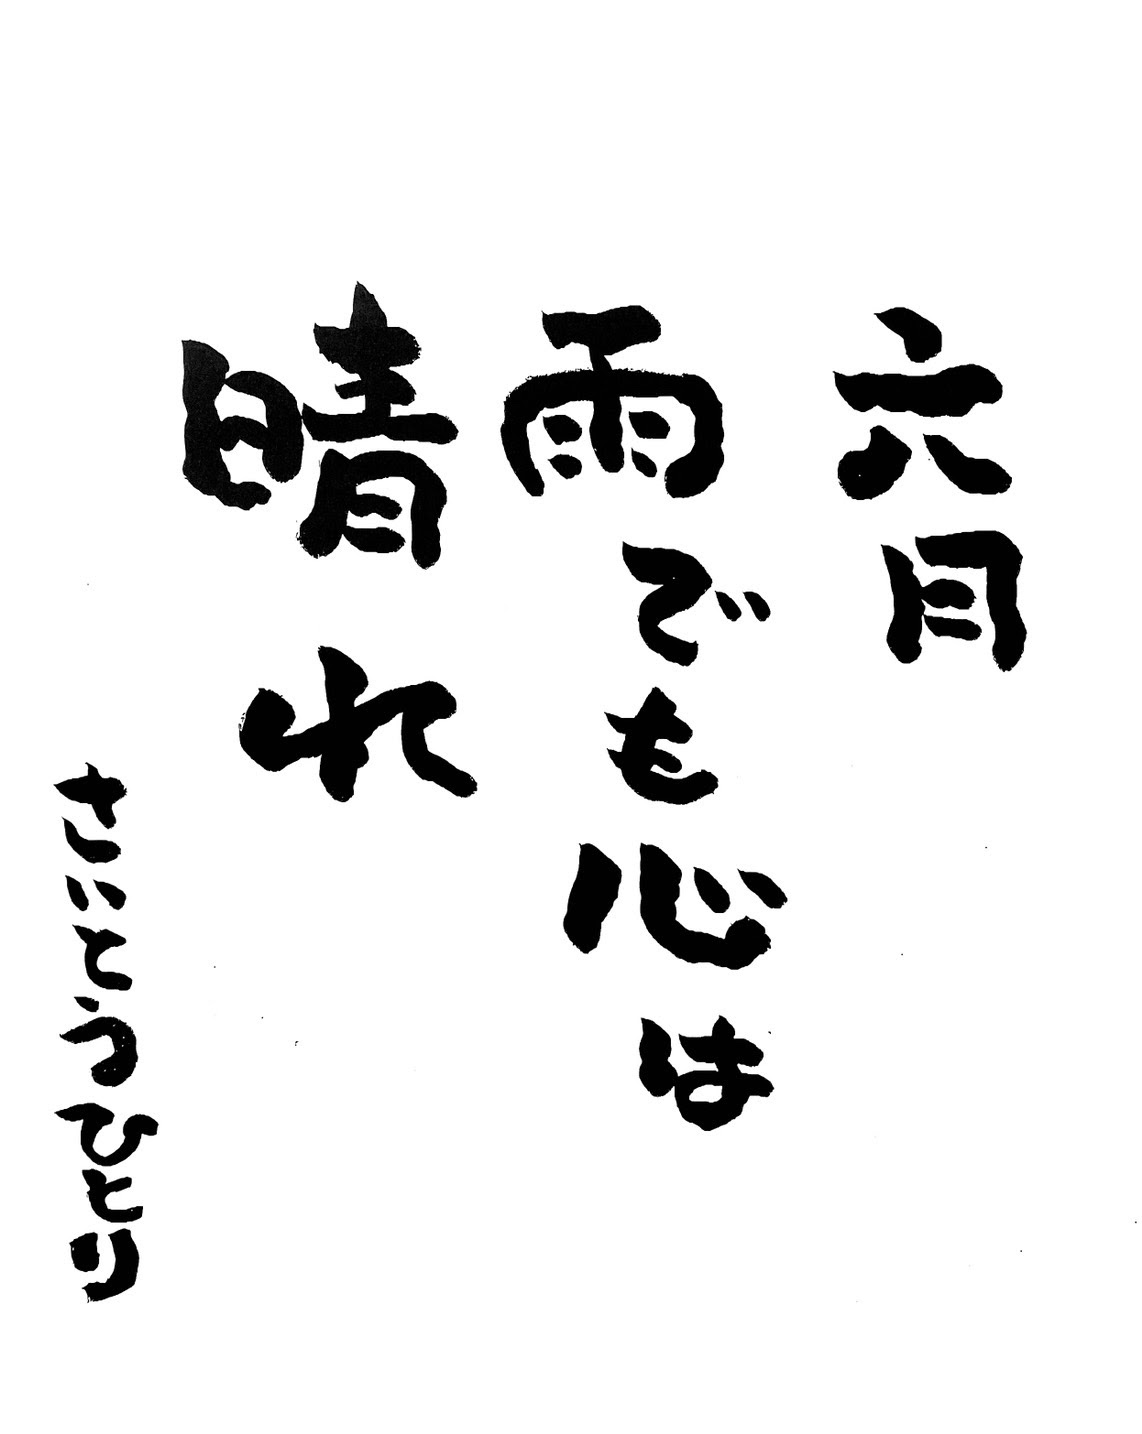 六月
雨でも心は
晴れ
さいとうひとり